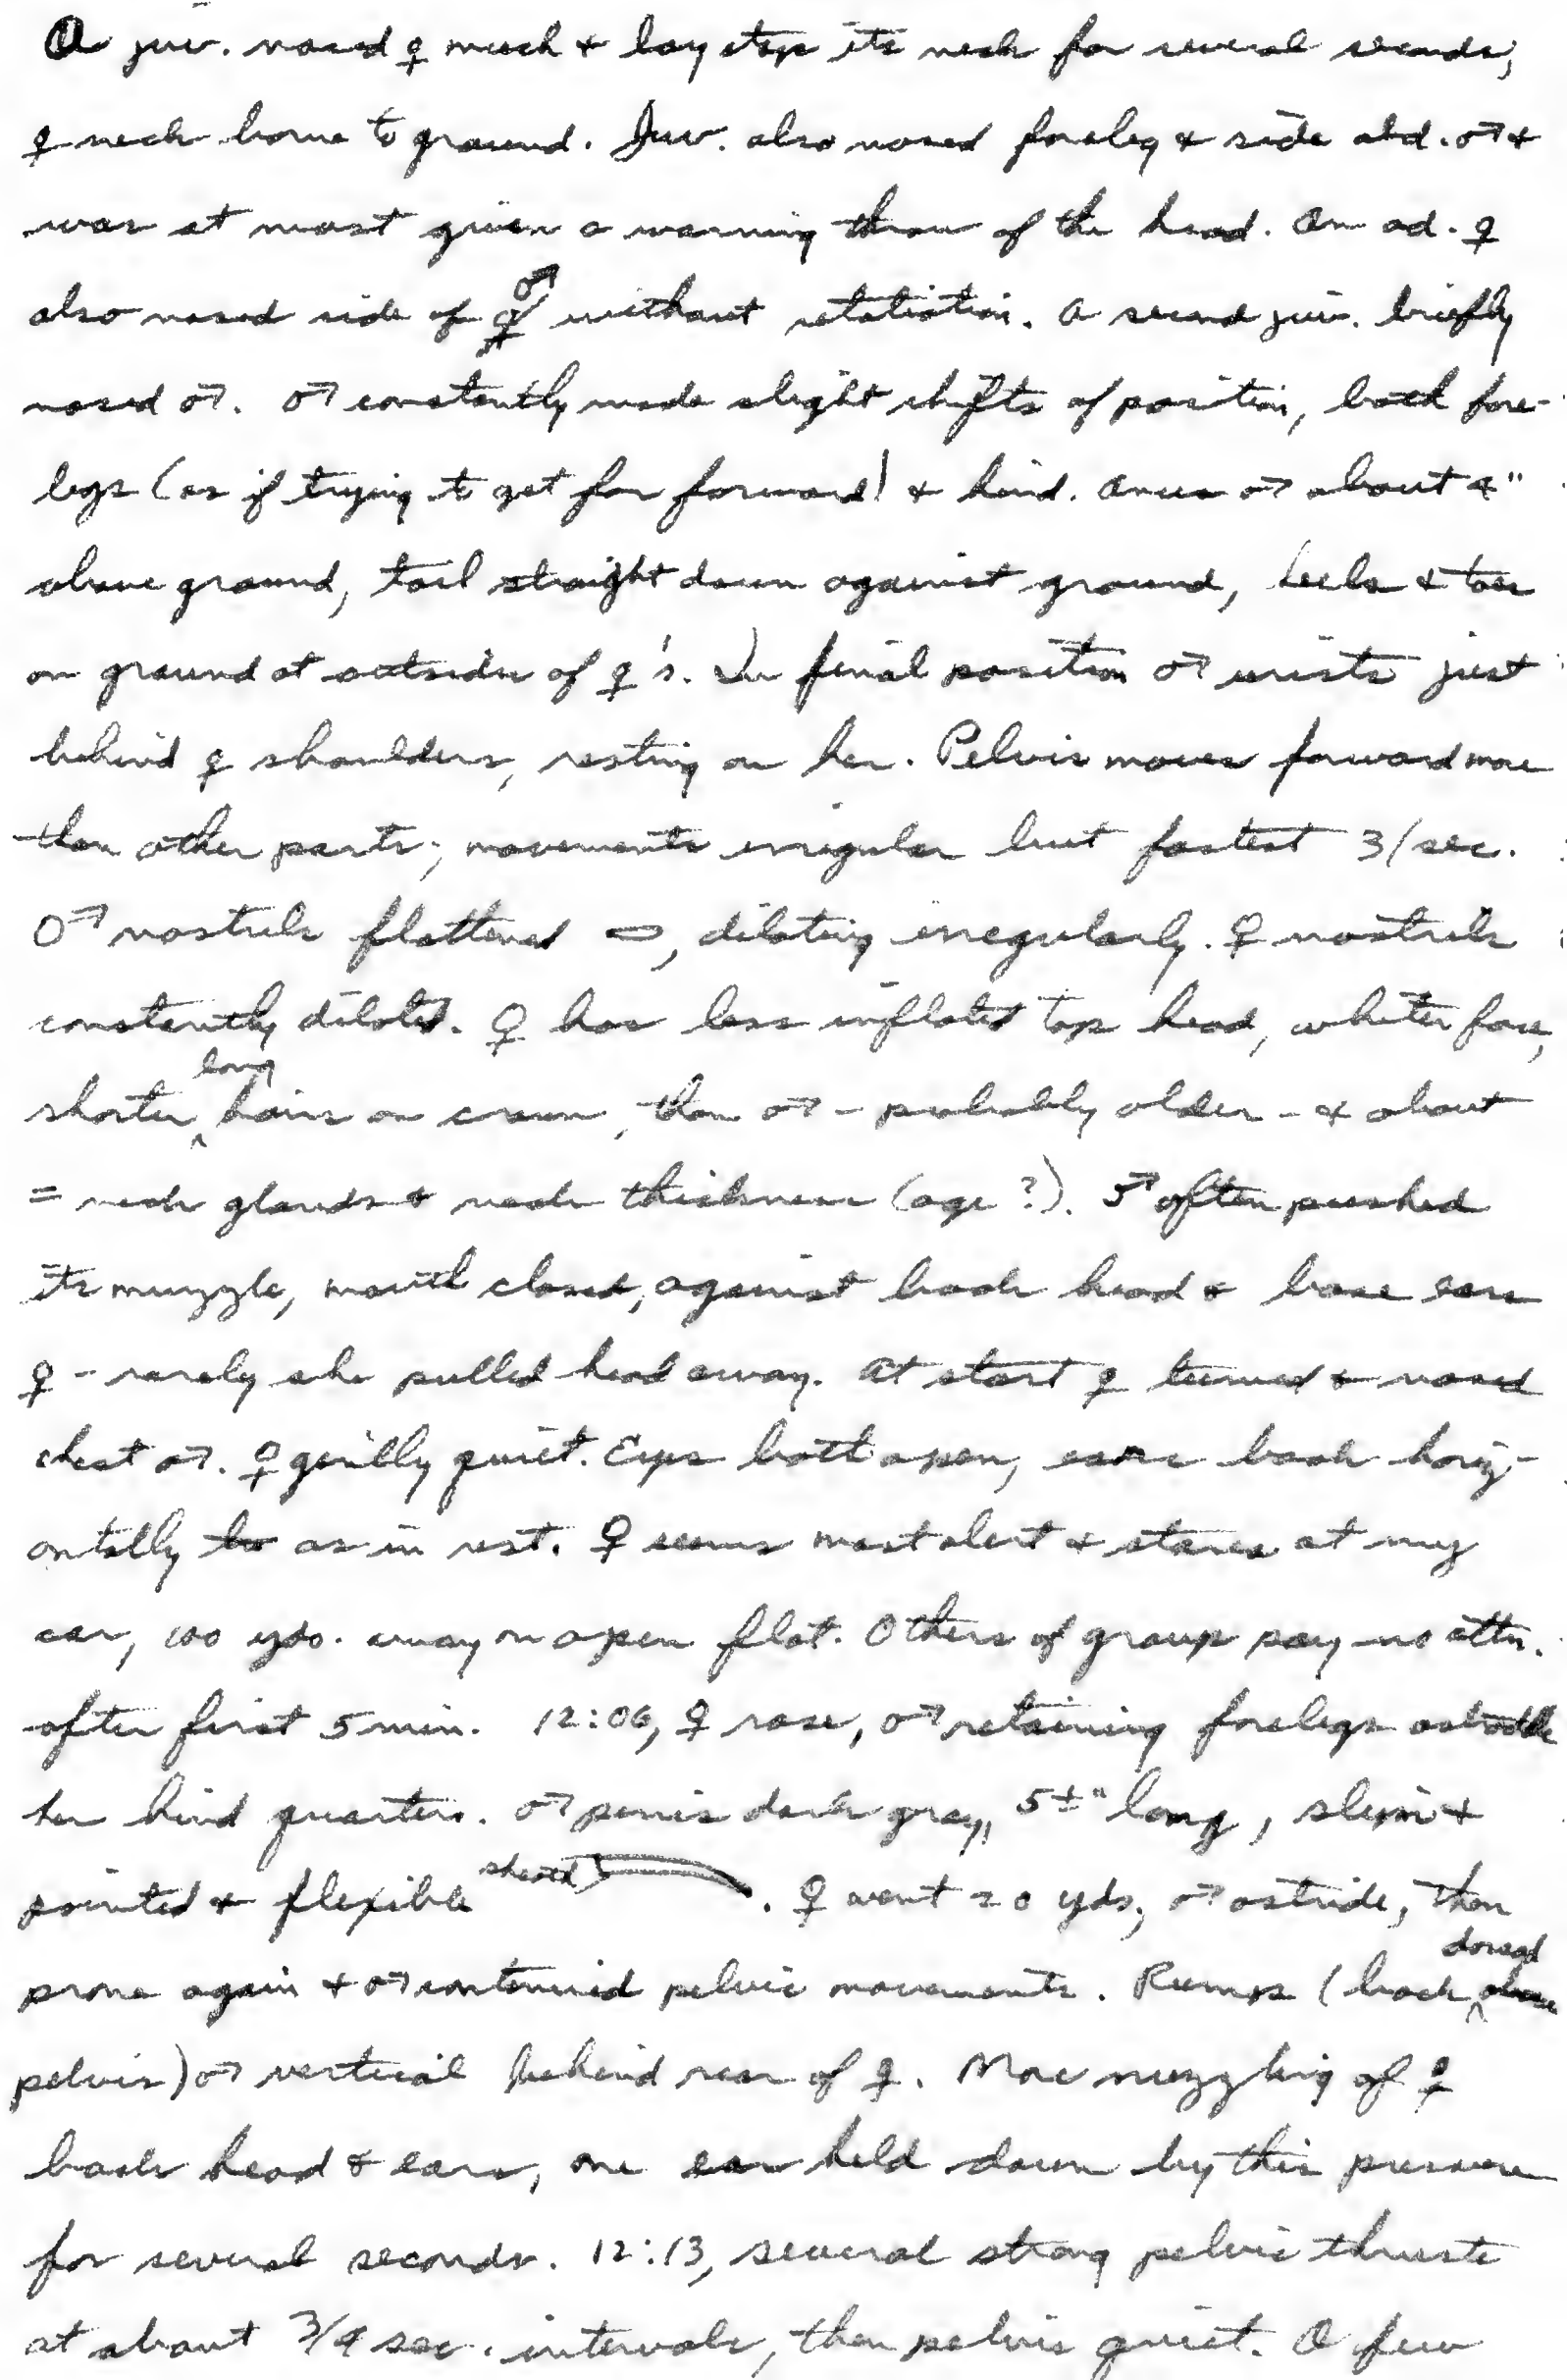 A juv. nosed ♀ much & lay atop its neck for several seconds;
♀ neck borne to ground. Juv. also nosed foreleg & side abd. ♂ &
was at most given a warning throw of the head. An ad. ♀
also nosed side of ♂ without retaliation. A second juv. briefly
nosed ♂. ♂ constantly made slight shifts of position, both fore-
legs (as if trying to get far forward) & hind. Anus ♂ about 4"
above ground, tail straight down against ground, heels & toes
on ground at outsides of ♀'s. In final position ♂ wrists just
behind ♀ shoulders, resting on her. Pelvis moves forward more
than other parts; movements irregular but fastest 3/sec.
♂ nostrils flattened, dilating irregularly. ♀ nostrils
constantly dilated. ♀ has less inflated top head, whiter face,
shorter long hairs on crown, than ♂ - probably older - & about
= neck glands & neck thickness (age?). ♂ often pushed
its muzzle, mouth closed, against back head & base ears
♀ - rarely she pulled head away. At start ♀ turned & nosed
chest ♂. ♀ genlly quiet. Eyes both open, ears back horiz-
ontally as in rest. ♀ seems most alert & stares at my
car, 100 yds. away on open flat. Others of group pay no attn.
after first 5 min. 12:06, ♀ rose, ♂ retaining forelegs astraddle
her hind quarters. ♂ penis dark gray, 5±" long, slim &
pointed & flexible sheath. ♀ went 20 yds, ♂ astride, then
prone again & ♂ continued pelvic movements. Rump (back dorsad
pelvis) ♂ vertical behind rear of ♀. More nuzzling of ♀
back head & ears, one ear held down by this pressure
for several seconds. 12:13, several strong pelvic thrusts
at about 3/4 sec. intervals, then pelvis quiet. A few